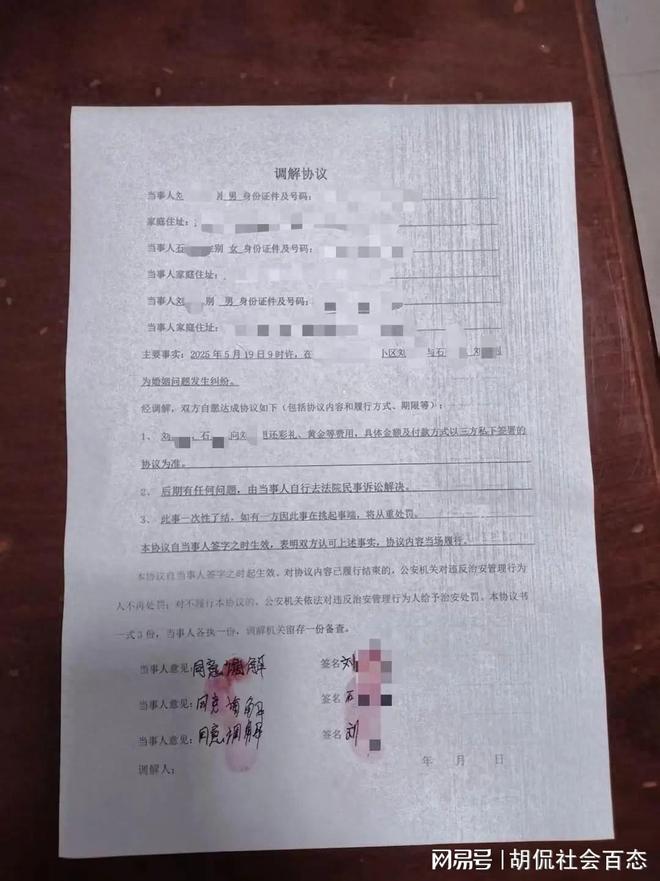 调解协议
当事人刘 别 男 身份证件及号码：
家庭住址：
当事人石 性别 女 身份证件及号码：
当事人家庭住址：
当事人刘 别 男 身份证件及号码：
当事人家庭住址：
主要事实：2025年5月19日9时许，在 小区刘 与石 刘
为婚姻问题发生纠纷。
经调解，双方自愿达成协议如下（包括协议内容和履行方式、期限等）：
1、刘 、石 向刘 退还彩礼、黄金等费用，具体金额及付款方式以三方私下签署的
协议为准。
2、后期有任何问题，由当事人自行去法院民事诉讼解决。
3、此事一次性了结，如有一方因此事在挑起事端，将从重处罚。
本协议自当事人签字之时生效，表明双方认可上述事实，协议内容当场履行。
本协议自当事人签字之时起生效。对协议内容已履行结束的，公安机关对违反治安管理行为
人不再处罚；对不履行本协议的，公安机关依法对违反治安管理行为人给予治安处罚。本协议书
一式3份，当事人各执一份，调解机关留存一份备查。
当事人意见：同意调解 签名 刘
当事人意见：同意调解 签名 石
当事人意见：同意调解 签名 刘
调解人： 年 月 日
网易号 | 胡侃社会百态